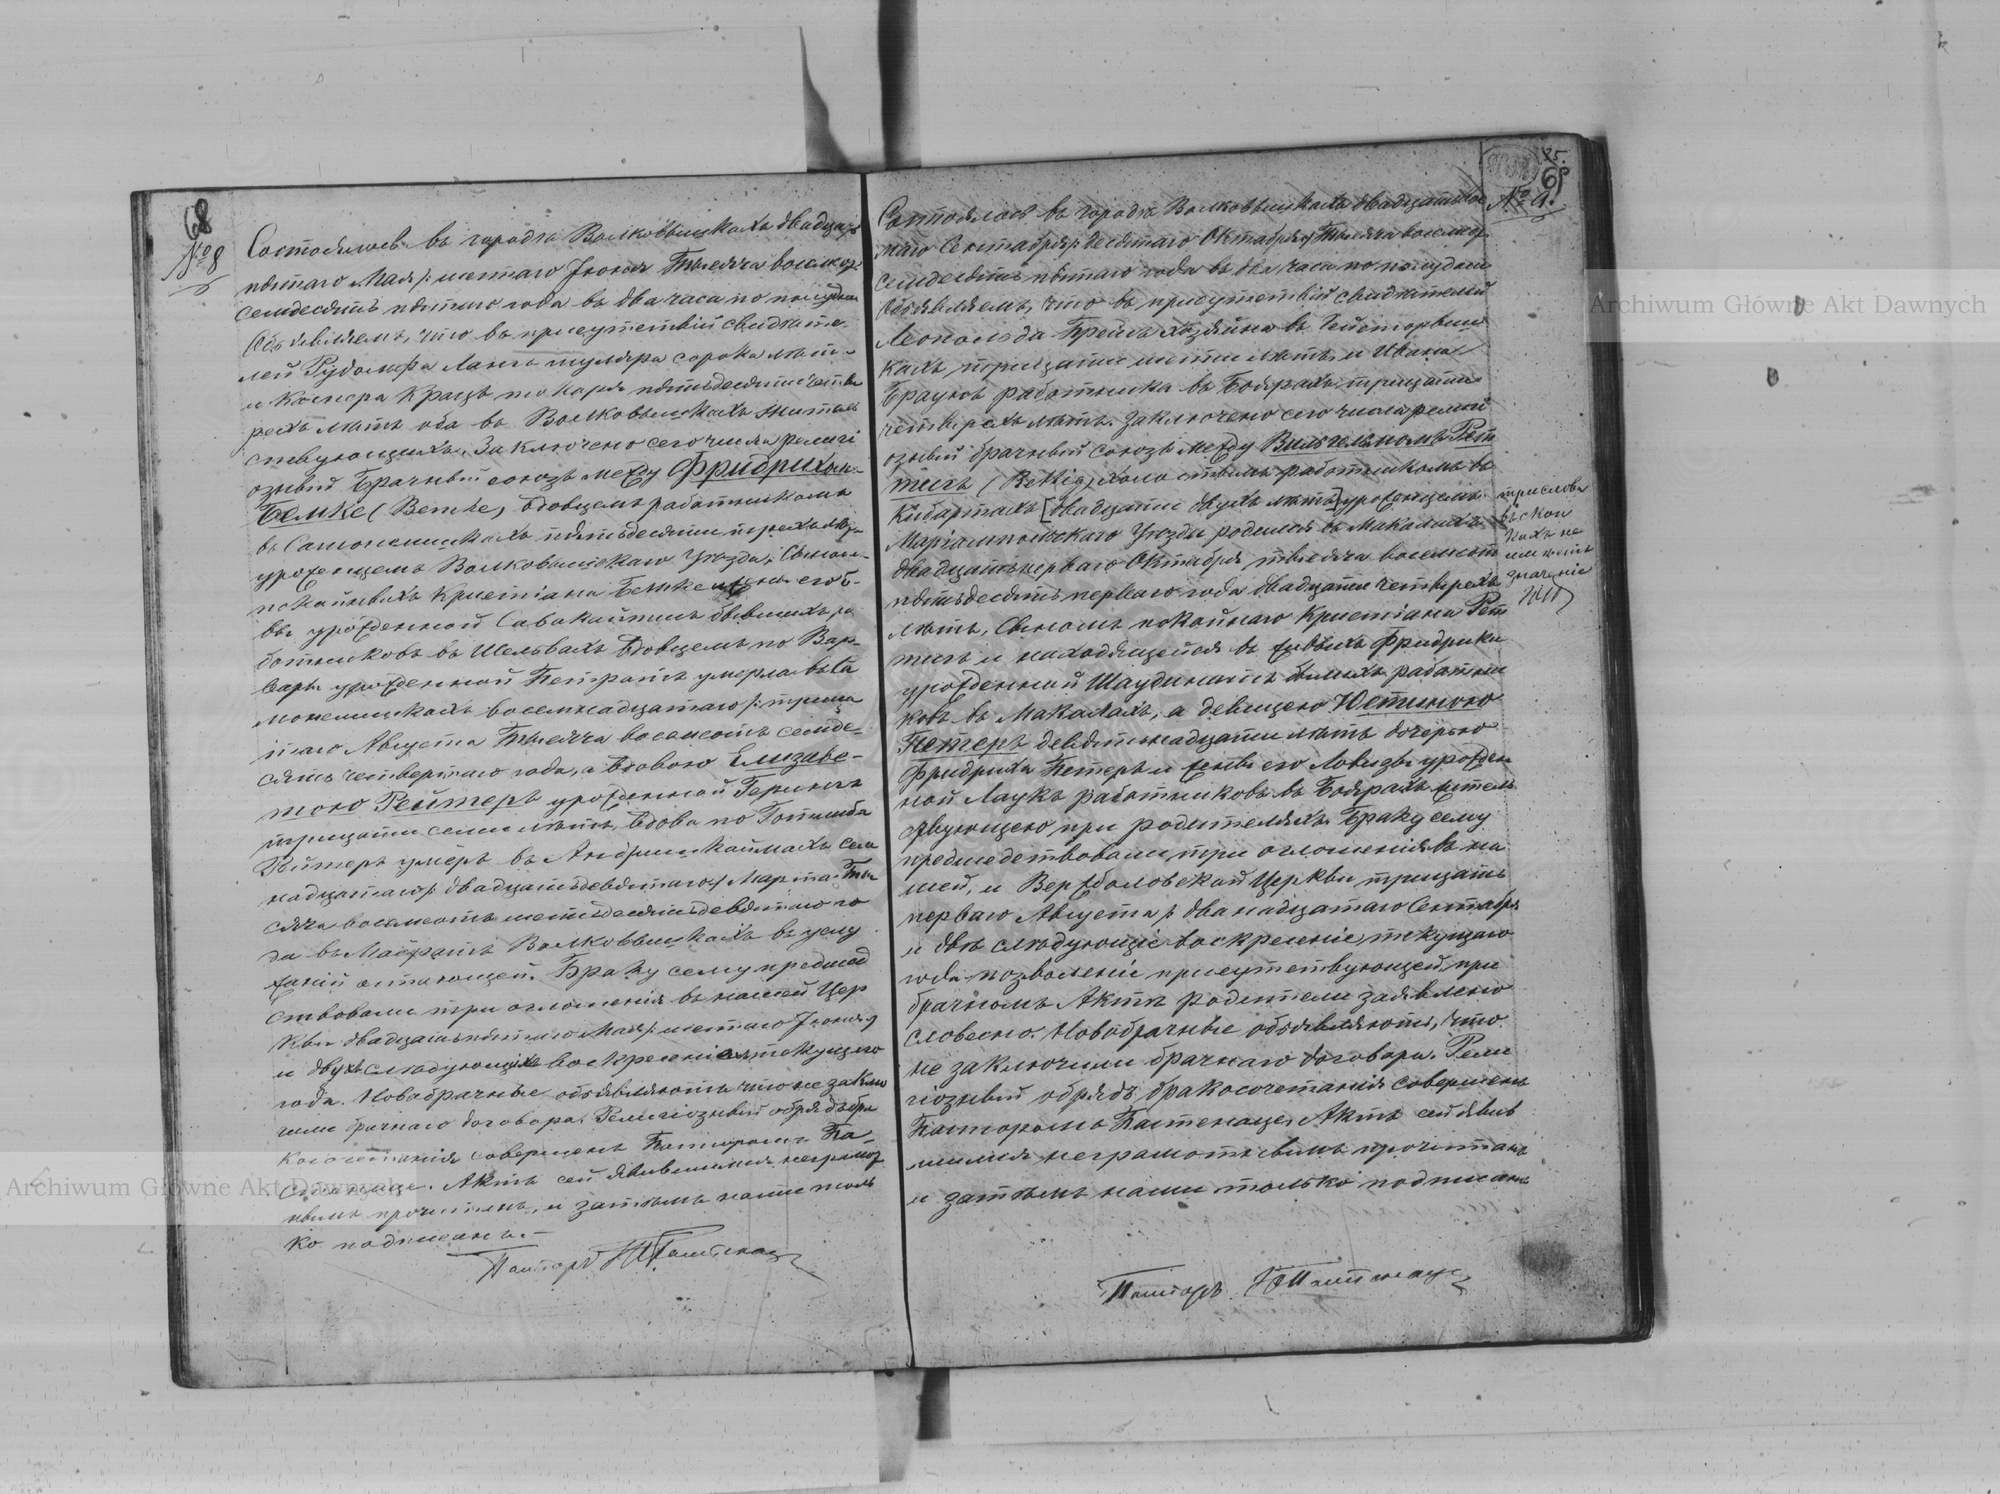 68
№ 8
Состоялось въ городѣ Волковышкахъ двадцать
пятаго Мая /: шестаго Іюня Тысяча восемсотъ
семдесятъ пятаго года въ два часа по полудни
Объявляемъ, что въ присутствіи свидѣте-
лей Рудольфа Лангъ шуляра сорока лѣтъ
и Каспера Крацъ токаря пятьдесяти четы
рехъ лѣтъ оба въ Волковышкахъ житель
ствующихъ. Заключено сего числа религі
озный Брачный союзъ между Фридрихом-
Бемке (Bemke) вдовцемъ работникомъ
въ пятьдесяти трехъ лѣтъ
уроженцемъ Волковышскаго Уѣзда, Сыном-
покойныхъ Кристіана Бемке и жены его б-
вы урожденной бывшихъ ра
ботниковъ въ Шельвахъ Вдовцемъ по Вар-
варѣ урожденной умерла въ Са
монишкахъ восемнадцатаго /: трица
таго Августа Тысяча восемсотъ семде-
сятъ четвертаго года, а Вдовою Елизаве-
тою Рейтеръ урожденной Герингъ
трицати семи лѣтъ, Вдова по Готлибѣ
Рейтеръ умеръ въ сем
надцатаго /: двадцать девятаго Марта Ты
сяча восемсотъ шестьдесятъ девятаго го
да въ Волковышкахъ въ услу
женій остающей. Браку сему предшед
ствовали три оглошенія въ нашей Цер
кви двадцать пятаго Мая /: шестаго Іюня
и двухъ слѣдующихъ воскресеніяхъ текущаго
года. Новобрачные объявляютъ что не заклю
чили брачнаго договора. Религіозный обрядъ бра
косочетанія совершенъ Пасторомъ Па-
стенаци. Актъ сей явившимся неграмот
нымъ прочитанъ, и затѣмъ нами толь
ко подписанъ.-
Пасторъ Пастенаци
25.
69
№ 9.
Состоялось въ городѣ Волковышкахъ двадцать ось
маго Сентября /: десятаго Октября Тысяча восемсотъ
семдесятъ пятаго года въ два часа по полудни
Объявляемъ, что въ присутствіи свидѣтелей
Леопольда Брейкъ хозяина въ
кахъ трицати шести лѣтъ, и Ивана
Браунъ работника въ Боярахъ трицати
четырехъ лѣтъ. Заключено сего числа религі
озный брачный союзъ между Вильгельмомъ Рет
тигъ (Rettig) холостымъ работникомъ въ
Кибартахъ [двадцати двухъ лѣтъ] уроженцемъ
Маріампольскаго Уѣзда родился въ Макалахъ
двадцать перваго Октября тысяча восемсотъ
пятьдесятъ перваго года двадцати четырехъ
лѣтъ, Сыномъ покойнаго Кристіана Рет
тигъ и находящейся въ живыхъ Фридрики
урожденной бывшихъ работни
ковъ въ Макалахъ, а дѣвицею Юстиною
Петеръ девятнадцати лѣтъ дочерью
Фридриха Петеръ и жены его Ловизы урожден
ной Лаукъ работниковъ въ Боярахъ житель
ствующею при родителяхъ. Браку сему
предшедствовали три оглошенія въ на
шей, и Вержболовской Церкви трицать
перваго Августа /: двѣнадцатаго Сентября
и двѣ слѣдующіе воскресеніе, текущаго
года позволеніе присутствующей при
брачномъ Актѣ родители заявлено
словесно. Новобрачные объявляютъ, что
не заключили брачнаго договора. Рели
гіозный обрядъ бракосочетанія совершенъ
Пасторомъ Пастенаци. Актъ сей явив
шимся неграмотнымъ прочитанъ
и затѣмъ нами только подписанъ
три слова
въ скоп
кахъ не
имѣютъ
значеніе
Пасторъ Пастенаци
Archiwum Główne Akt Dawnych
Archiwum Główne Akt Dawnych